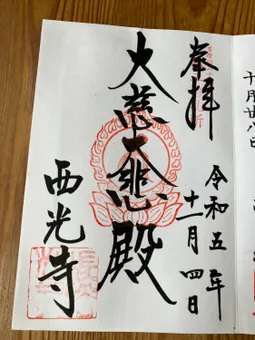 奉拝
令和五年
十一月四日
大慈大悲殿
西光寺
十月廿八日